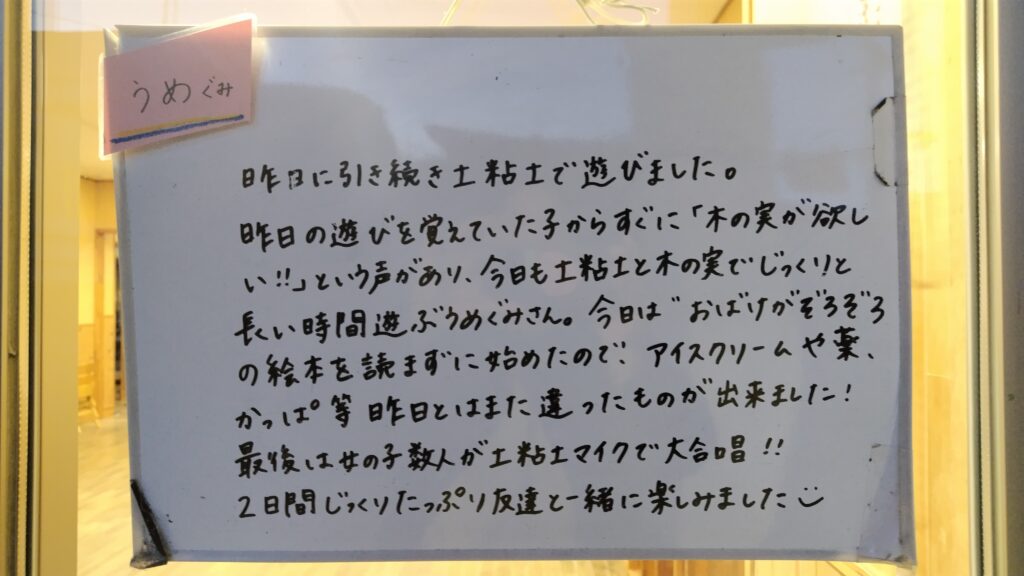 うめぐみ
昨日に引き続き土粘土で遊びました。
昨日の遊びを覚えていた子からすぐに「木の実が欲し
い!!」という声があり、今日も土粘土と木の実でじっくりと
長い時間遊ぶうめぐみさん。今日は"おばけがぞろぞろ
の絵本を読まずに始めたので、アイスクリームや薬、
かっぱ等昨日とはまた違ったものが出来ました!
最後は女の子数人が土粘土マイクで大合唱!!
2日間じっくりたっぷり友達と一緒に楽しみました